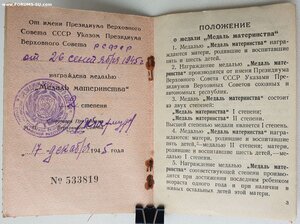 www.FORUMS-su.com
От имени Президиума Верховного
Совета СССР Указом Президиума
Верховного Совета РСФСР
от 26 сентября 1945 г.
награждена медалью
"Медаль материнства"
степени
17 декабря 1945 года
№ 533819
ПОЛОЖЕНИЕ
о медали „Медаль материнства"
1. Медалью „Медаль материнства" награждаются
матери, родившие и воспитавшие
пять и шесть детей.
2. Награждение медалью „Медаль материнства"
производится от имени Президиума
Верховного Совета СССР указами
Президиумов Верховных Советов союзных и
автономных республик.
3. „Медаль материнства" состоит из двух
степеней:
„Медаль материнства" I степени;
„Медаль материнства" II степени.
Высшей степенью медали является I степень.
4. Медалью „Медаль материнства" награждаются
матери, родившие и воспитавшие
пять детей,—медалью II степени,
шесть детей—медалью I степени.
5. Награждение матери „Медаль материнства"
соответствующей степени производится
при достижении последним ребенком
возраста одного года и при наличии
живых остальных детей этой матери.
3